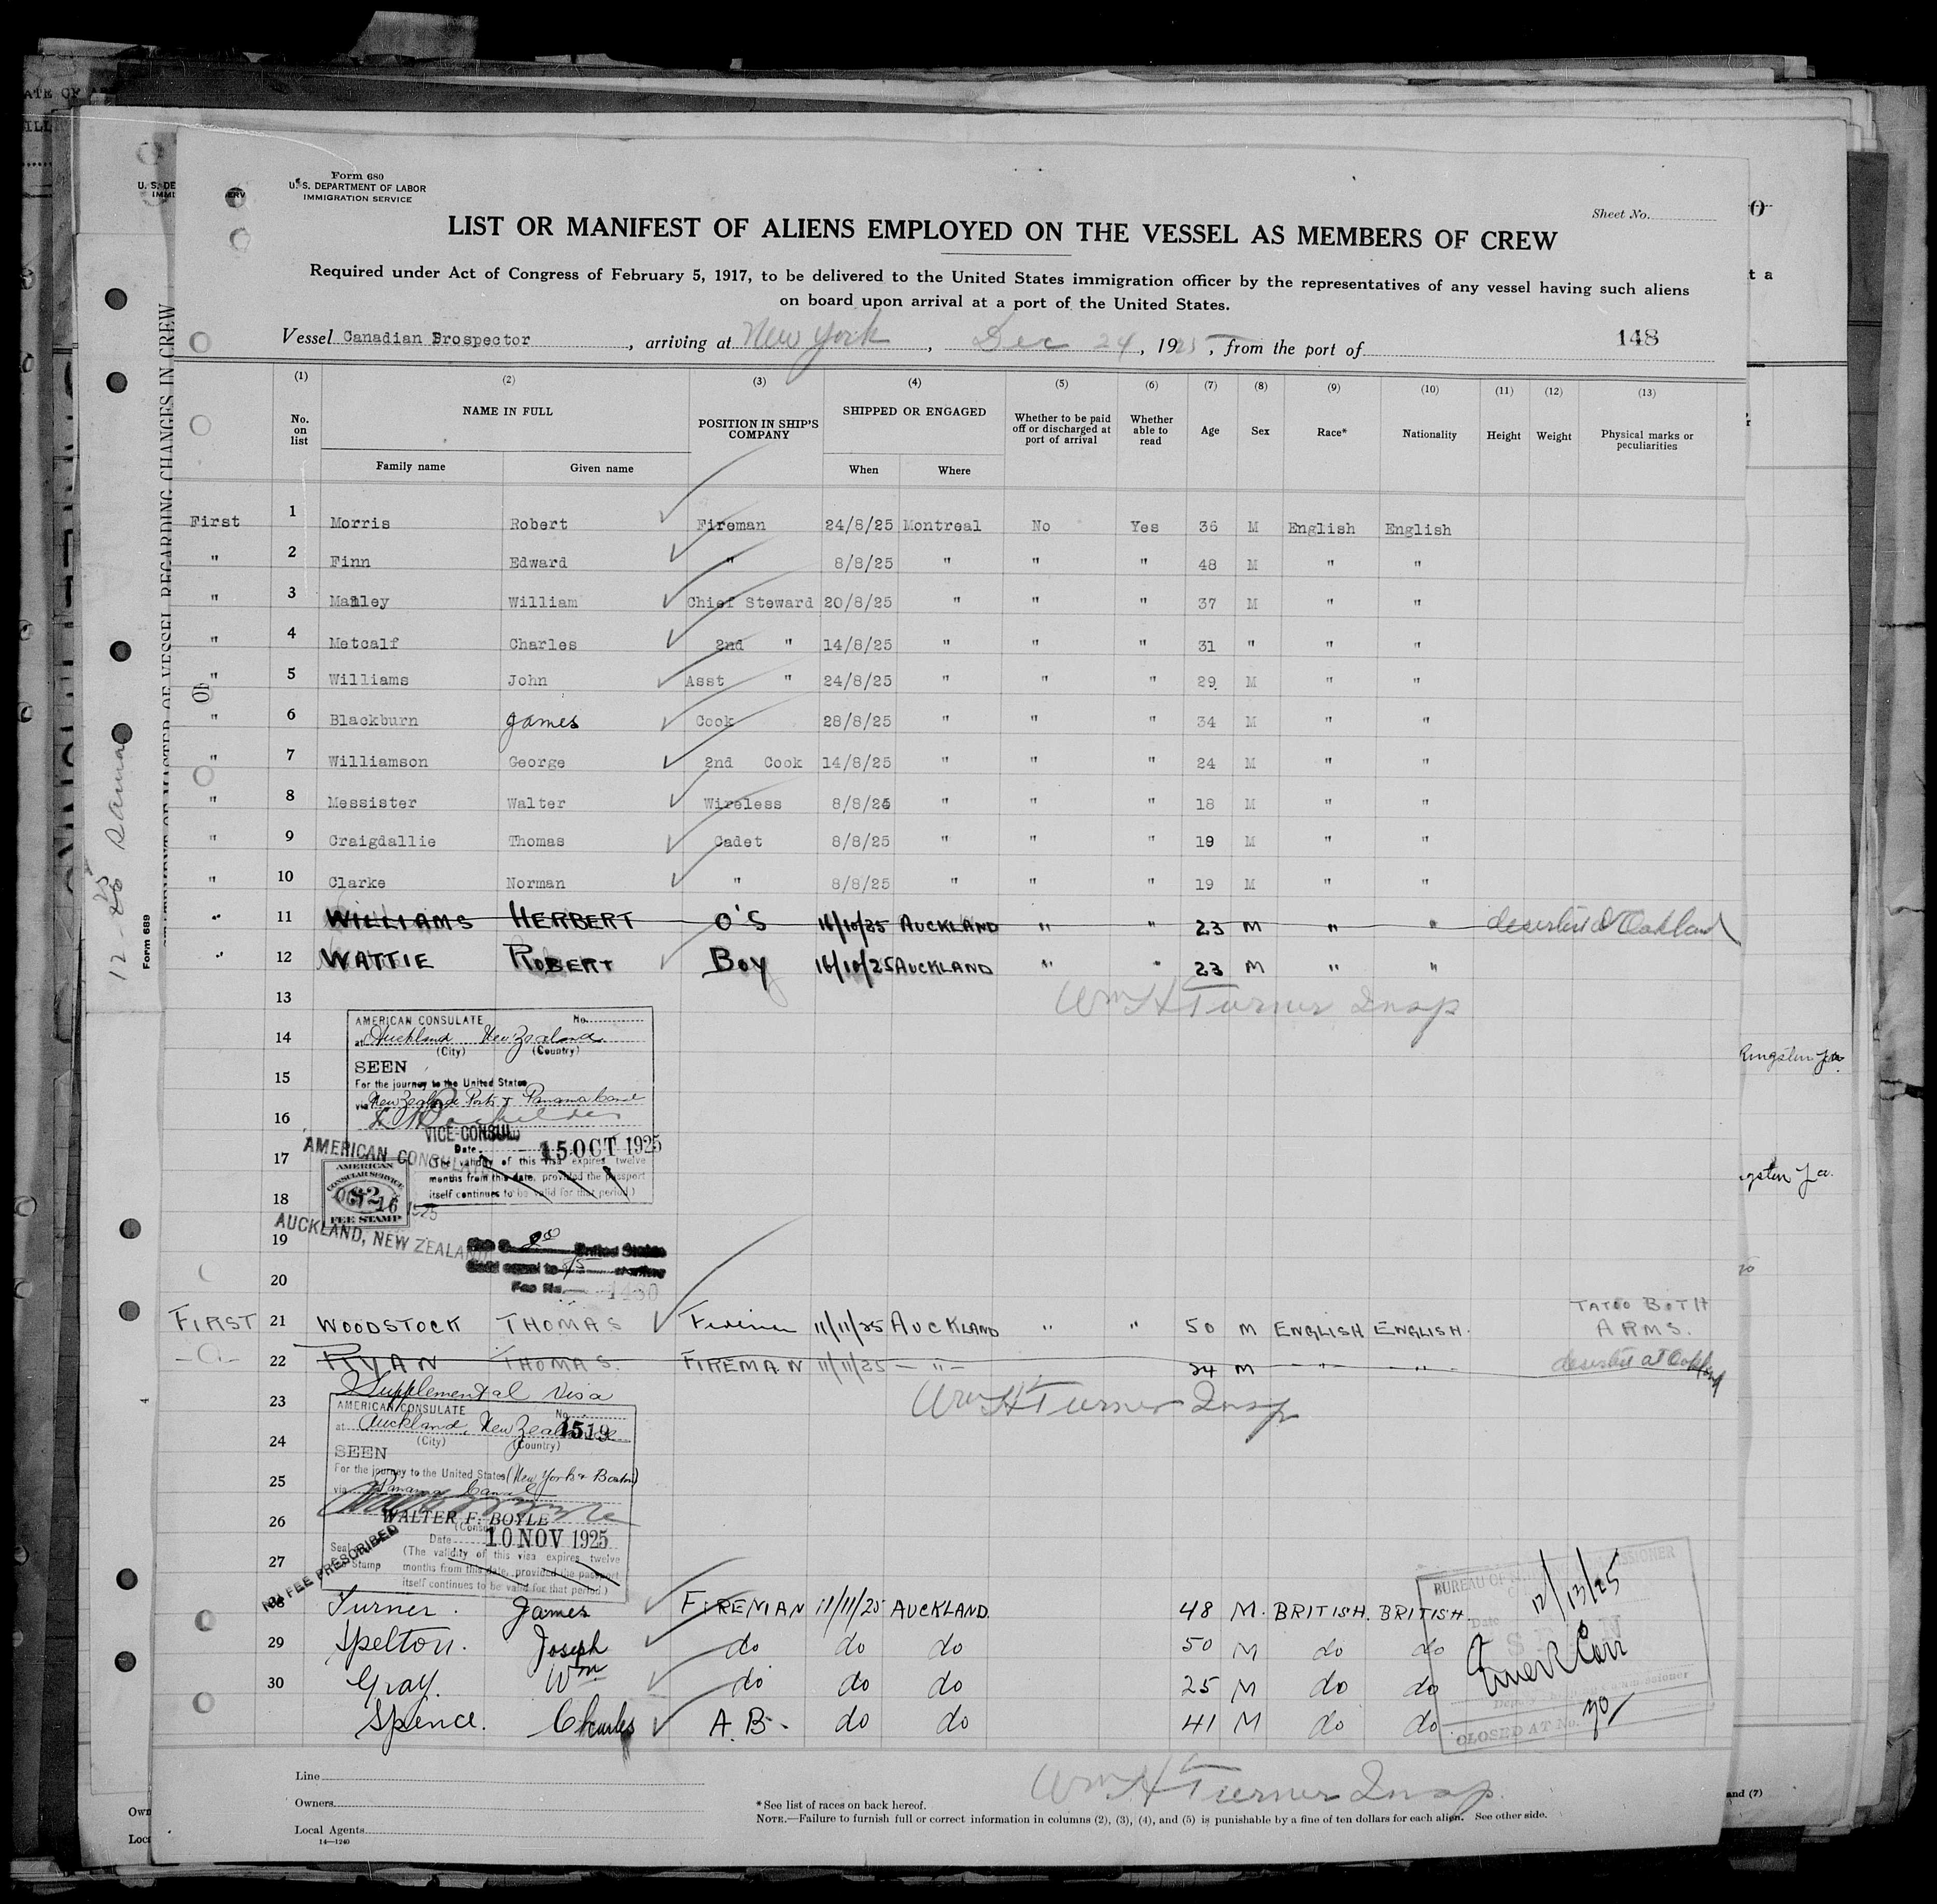 Form 680
U. S. DEPARTMENT OF LABOR
IMMIGRATION SERVICE
Sheet No.
LIST OR MANIFEST OF ALIENS EMPLOYED ON THE VESSEL AS MEMBERS OF CREW
Required under Act of Congress of February 5, 1917, to be delivered to the United States immigration officer by the representatives of any vessel having such aliens
on board upon arrival at a port of the United States.
Vessel Canadian Prospector, arriving at New York, Dec 24, 1925, from the port of 148
(1) (2) (3) (4) (5) (6) (7) (8) (9) (10) (11) (12) (13)
No. on list NAME IN FULL POSITION IN SHIP'S COMPANY SHIPPED OR ENGAGED Whether to be paid off or discharged at port of arrival Whether able to read Age Sex Race* Nationality Height Weight Physical marks or peculiarities
Family name Given name When Where
First 1 Morris Robert Fireman 24/8/25 Montreal No Yes 36 M English English
" 2 Finn Edward " 8/8/25 " " " 48 M " "
" 3 Manley William Chief Steward 20/8/25 " " " 37 M " "
" 4 Metcalf Charles 2nd " 14/8/25 " " " 31 " " "
" 5 Williams John Asst " 24/8/25 " " " 29 M " "
" 6 Blackburn James Cook 28/8/25 " " " 34 M " "
" 7 Williamson George 2nd Cook 14/8/25 " " " 24 M " "
" 8 Messister Walter Wireless 8/8/25 " " " 18 M " "
" 9 Craigdallie Thomas Cadet 8/8/25 " " " 19 M " "
" 10 Clarke Norman " 8/8/25 " " " 19 M " "
" 11 WILLIAMS HERBERT O'S 16/10/25 AUCKLAND " " 23 M " " deserted at Oakland
" 12 WATTIE ROBERT BOY 16/10/25 AUCKLAND " " 23 M " "
13 Wm H Turner Insp
14 AMERICAN CONSULATE No.
at Auckland New Zealand
(City) (Country)
SEEN
15 For the journey to the United States
via New Zealand Ports & Panama Canal
16
VICE CONSUL
Date 15 OCT 1925
17 (The validity of this visa expires twelve
months from this date, provided the passport
18 itself continues to be valid for that period.)
AMERICAN CONSULATE
AMERICAN
CONSULAR SERVICE
$2
OCT 16 1925
FEE STAMP
19 AUCKLAND, NEW ZEALAND
20 Fee No. 1480
FIRST 21 WOODSTOCK THOMAS Fireman 11/11/25 AUCKLAND " " 50 M ENGLISH ENGLISH. TATOO BOTH ARMS.
22 RYAN THOMAS. FIREMAN 11/11/25 — " — 24 M " " deserted at Oakland
Supplemental Visa
23 AMERICAN CONSULATE No. 1519
Wm H Turner Insp
at Auckland, New Zealand
24 (City) (Country)
SEEN
25 For the journey to the United States (New York & Boston)
via Panama Canal
26 WALTER F. BOYLE
(Consul)
Date 10 NOV 1925
27 Seal Stamp (The validity of this visa expires twelve
months from this date, provided the passport
itself continues to be valid for that period.)
NO FEE PRESCRIBED
28 Turner. James FIREMAN 11/11/25 AUCKLAND. 48 M. BRITISH. BRITISH.
29 Spelton. Joseph do do do 50 M do do
30 Gray. Wm do do do 25 M do do
Spence. Charles A.B. do do 41 M do do
12/13/25
SEEN
CLOSED AT No.
Wm H Turner Insp.
Line
Owners
Local Agents
14—1240
*See list of races on back hereof.
NOTE.—Failure to furnish full or correct information in columns (2), (3), (4), and (5) is punishable by a fine of ten dollars for each alien. See other side.
Form 689
STATEMENT OF MASTER OF VESSEL REGARDING CHANGES IN CREW
Kingston Ja.
and (7)